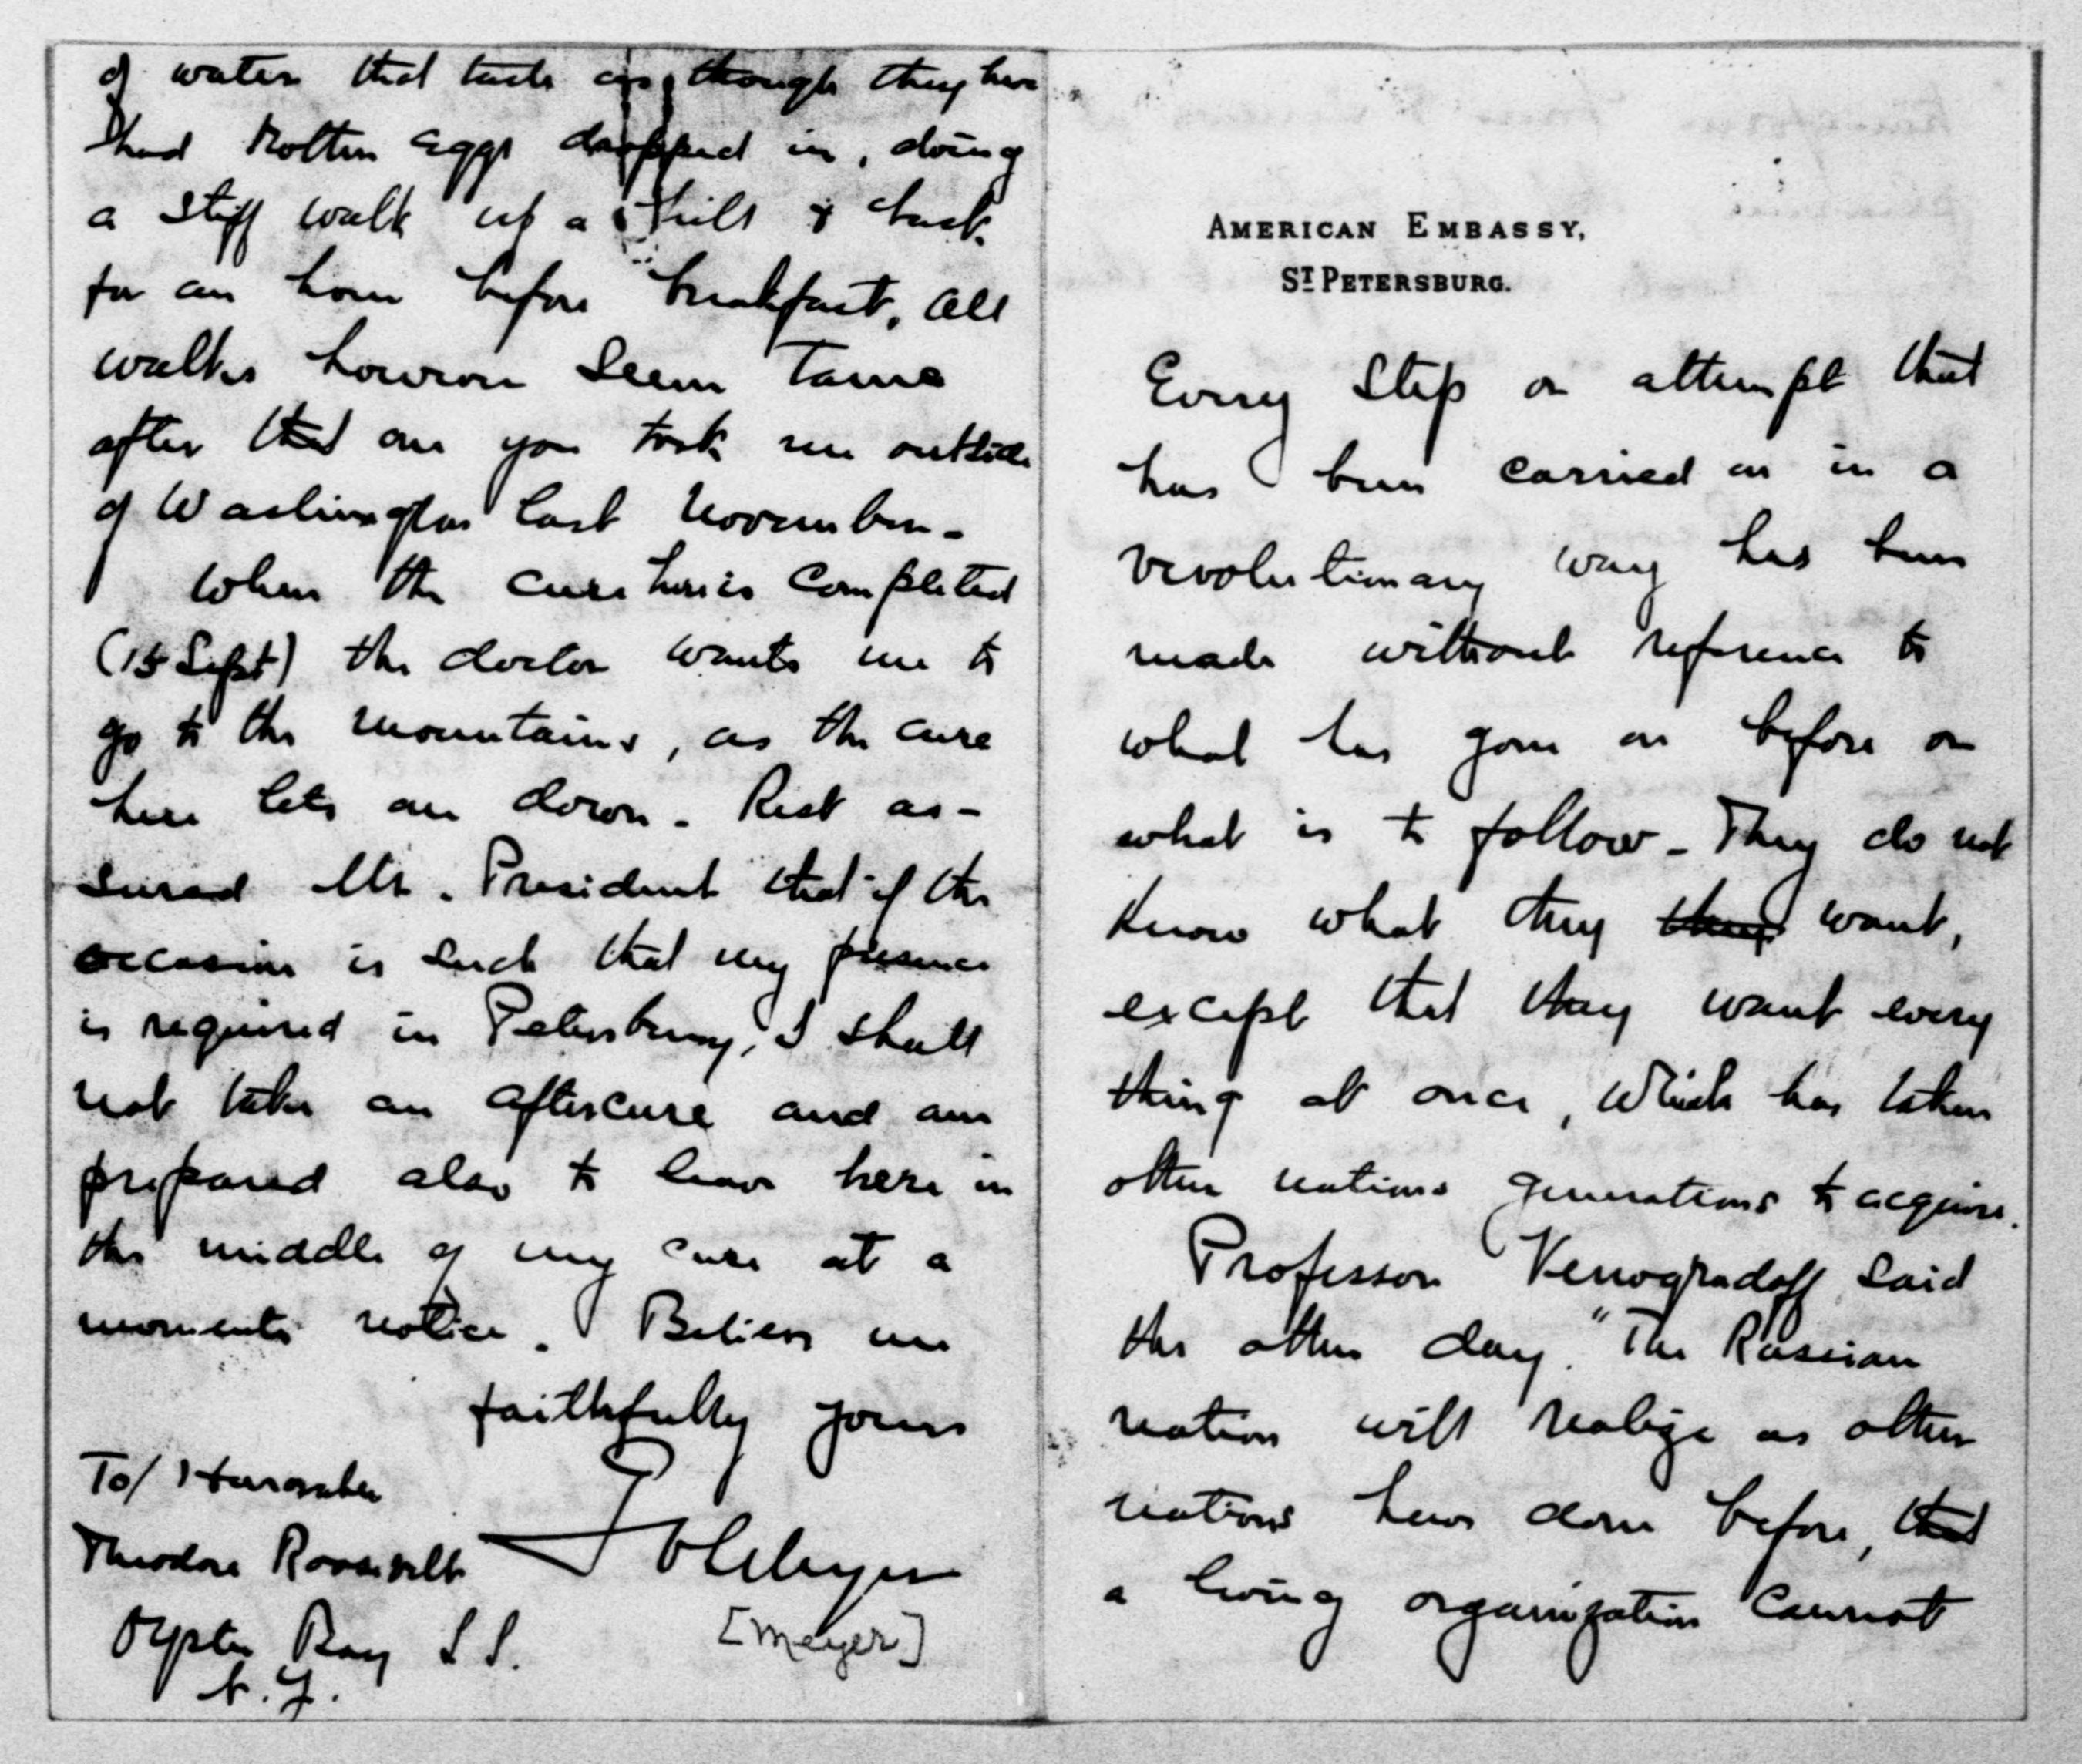 of water that taste as though they have
had rotten eggs dropped in, doing
a stiff walk up a hill & back
for an hour before breakfast, all
walks however seem tame
after that one you took me outside
of Washington last November -
When the cure here is completed
(15 Sept) the doctor wants me to
go to the mountains, as the cure
here lets one down - Rest as-
sured Mr. President that if the
occasion is such that my presence
is required in Petersburg, I shall
not take an aftercure and am
prepared also to leave here in
the middle of my cure at a
moments notice. Believe me
faithfully yours
To/ Honorable
Theodore Roosevelt
GvLMeyer
Oyster Bay L I.
[Meyer]
N. Y.
AMERICAN EMBASSY,
ST PETERSBURG.
Every step or attempt that
has been carried on in a
revolutionary way has been
made without reference to
what has gone on before or
what is to follow - They do not
know what they they want,
except that they want every
thing at once, which has taken
other nations generations to acquire.
Professor Venogradoff said
the other day. "The Russian
nation will realize as other
nations have done before, that
a living organization cannot